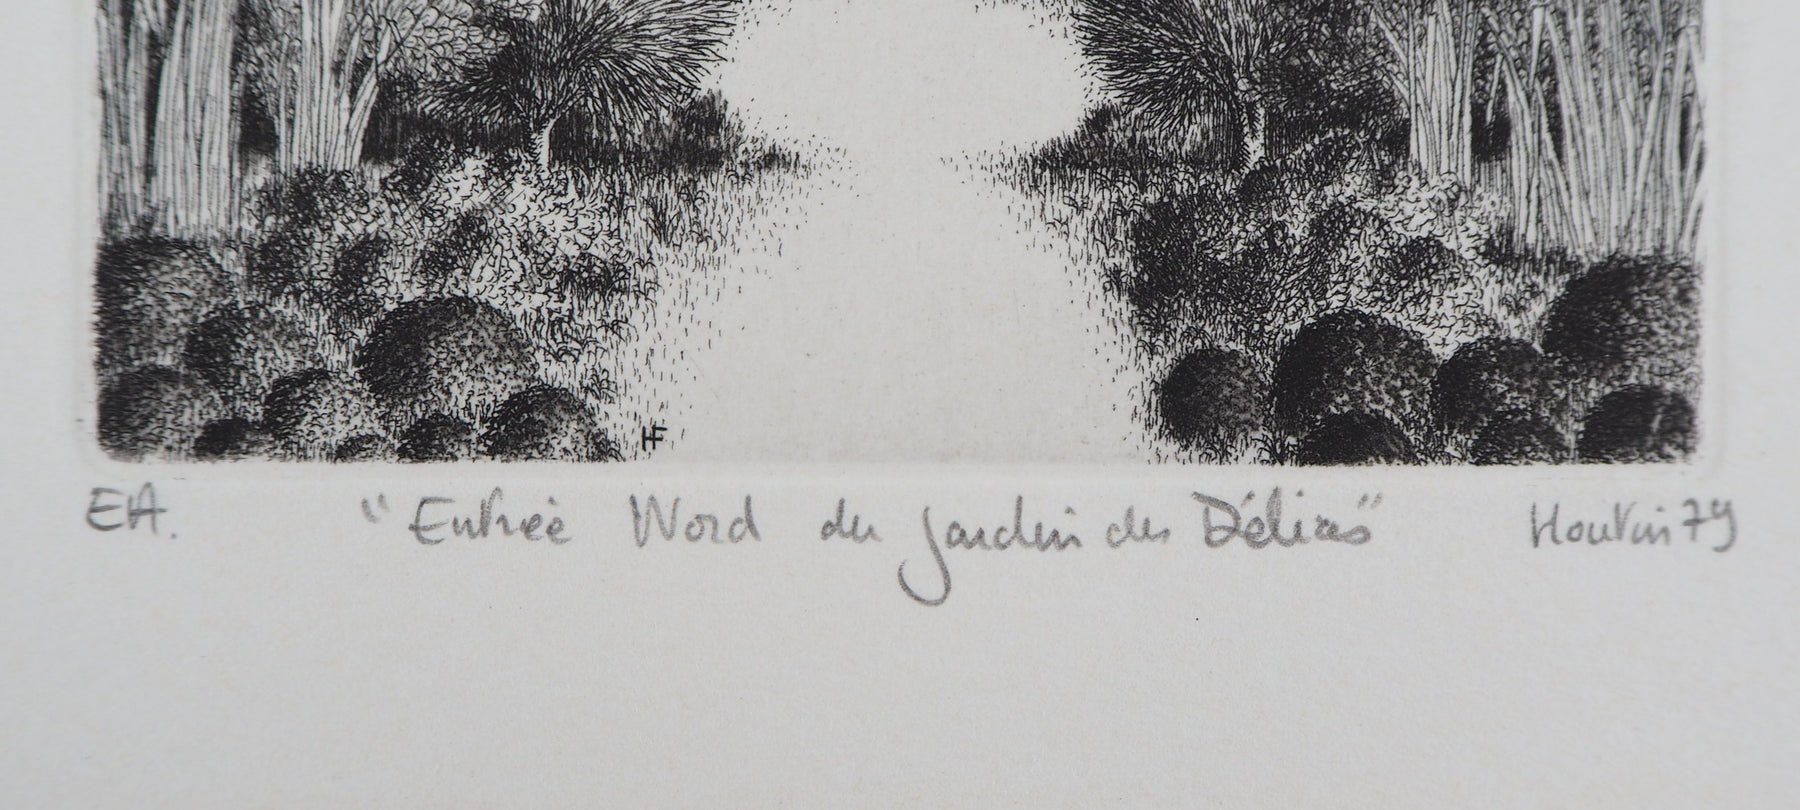 HF
EA. "Entrée Nord du jardin des Délices" Houtin 79